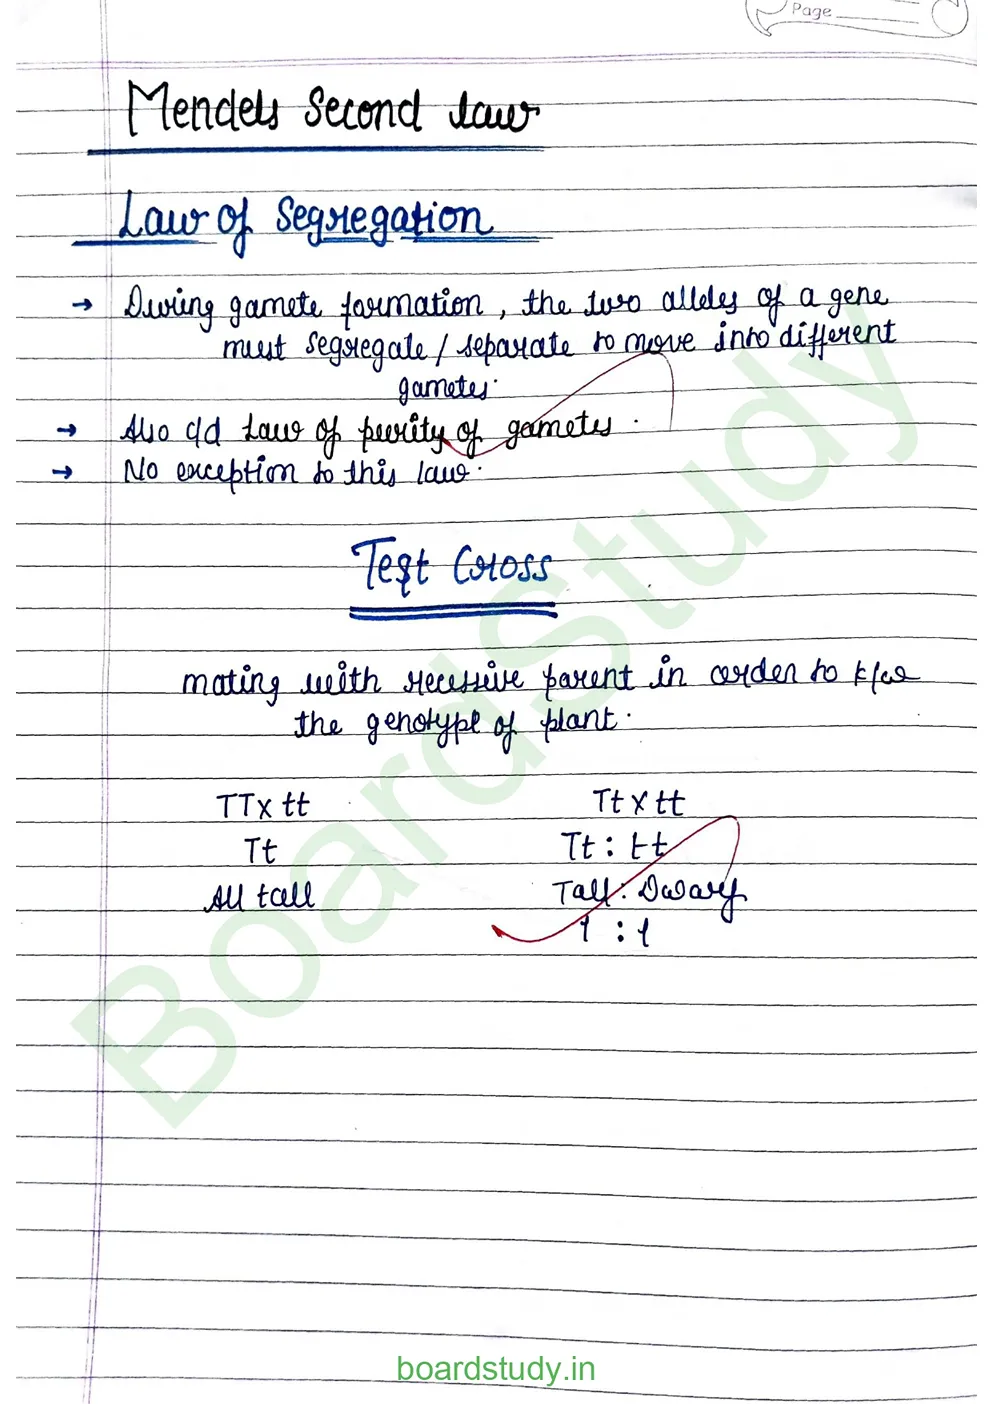 Page
Mendels Second law
Law of Segregation
→ During gamete formation, the two alleles of a gene
must segregate / separate to move into different
gametes.
→ Also c/d Law of purity of gametes.
→ No exception to this law.
Test Cross
mating with recessive parent in order to k/w
the genotype of plant.
TT x tt Tt x tt
Tt Tt : tt
All tall Tall : Dwarf
1 : 1
BoardStudy
boardstudy.in